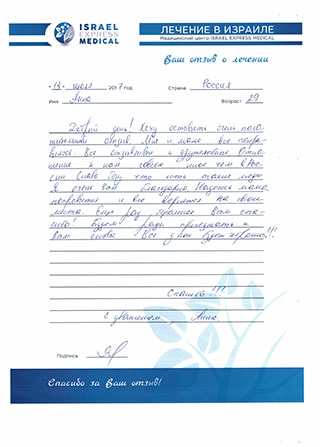 ISRAEL
EXPRESS
MEDICAL
ЛЕЧЕНИЕ В ИЗРАИЛЕ
Медицинский центр ISRAEL EXPRESS MEDICAL
Ваш отзыв о лечении
13 июля 2017 год Страна Россия
Имя Анна Возраст 29
Добрый день! Хочу оставить очень поло-
жительный отзыв. Мне и маме все понра-
вилось. Все отзывчивые и дружелюбные. Отно-
шение к нам совсем иное чем в Рос-
сии. Слава Богу, что есть такие люди
Я очень Вам благодарна. Надеюсь мама
поправится и все вернется на свои
места. Еще раз огромное Вам спа-
сибо! Будем рады приезжать к
Вам снова. Все у Вас будет хорошо!!!
Спасибо!!!
С уважением Анна
Подпись
Спасибо за Ваш отзыв!